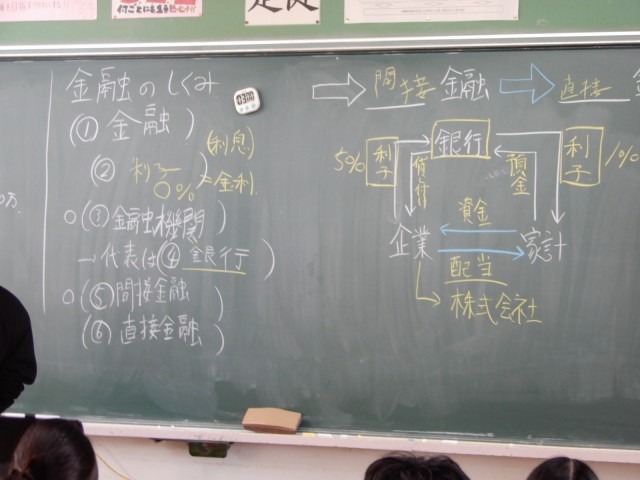 金融のしくみ
(① 金融)
(② 利子 (利息)
○% → 金利)
○(③金融機関)
→代表は(④銀行)
○(⑤間接金融)
(⑥直接金融)
⇨ 間接 金融 ⇨ 直接 金
5% 利子 銀行 利子 1%
貸付 預金
資金
企業 家計
配当
株式会社